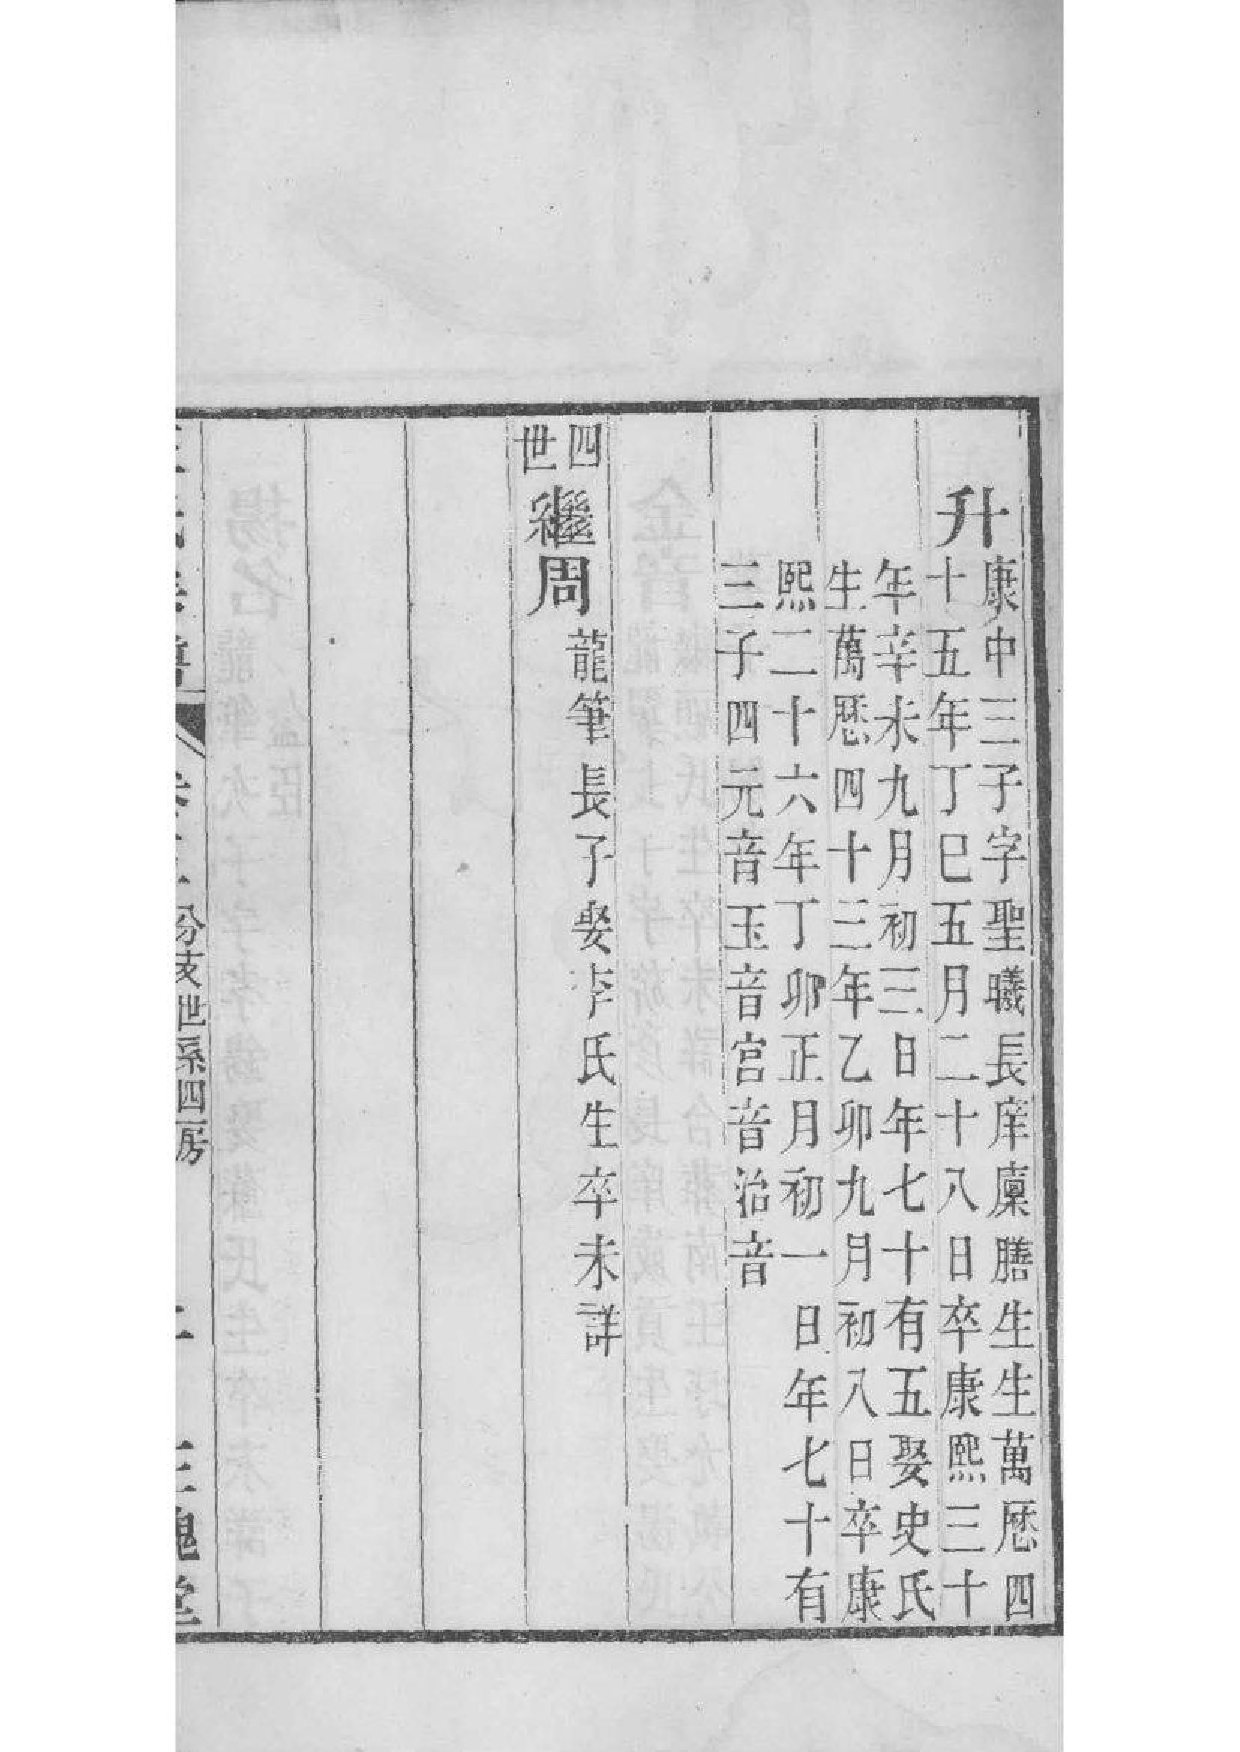 升
康中三子字聖曦長庠廩膳生生萬厯四
十五年丁巳五月二十八日卒康熙三十
年辛未九月初三日年七十有五娶史氏
生萬厯四十三年乙卯九月初八日卒康
熙二十六年丁卯正月初一日年七十有
三子四元音玉音宫音治音
四世
繼周
龍筆長子娶李氏生卒未詳
分支世系四房
三槐堂